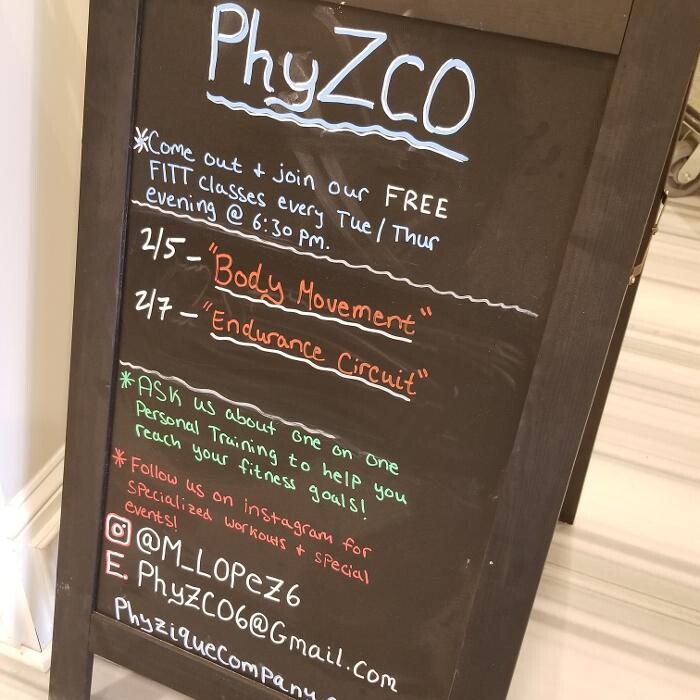 PhyZCO
*Come out + join our FREE
FITT classes every Tue/Thur
evening @ 6:30 pm.
2/5 - "Body Movement"
2/7 - "Endurance Circuit"
*ASK us about one on one
Personal Training to help you
reach your fitness goals!
*Follow us on instagram for
specialized workouts + special
events!
@M_LOPeZ6
E. PhyZCO6@Gmail.com
PhyziqueCompany